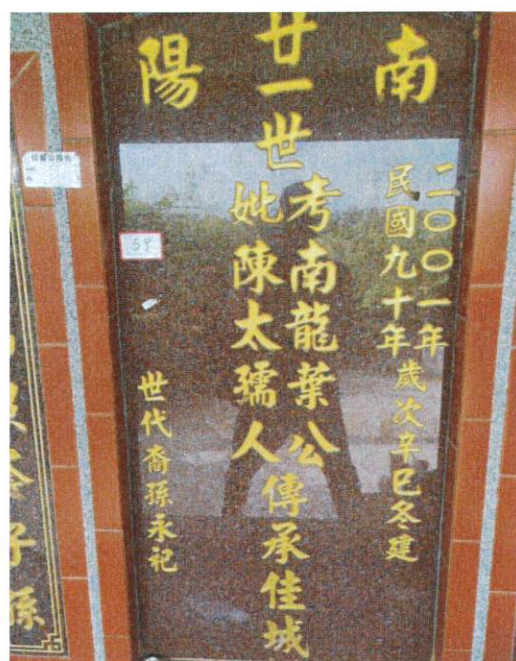 南陽
二〇〇一年
民國九十年歲次辛巳冬建
廿一世
考南龍葉公
妣陳太孺人
傳承佳城
世代裔孫永祀
54
孫